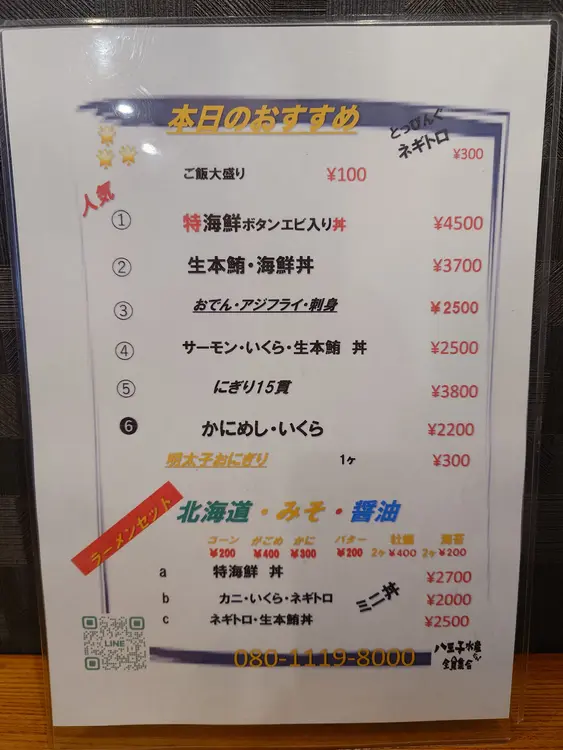 本日のおすすめ
とっぴんぐ
ネギトロ
¥300
ご飯大盛り ¥100
人気
① 特海鮮ボタンエビ入り丼 ¥4500
② 生本鮪・海鮮丼 ¥3700
③ おでん・アジフライ・刺身 ¥2500
④ サーモン・いくら・生本鮪 丼 ¥2500
⑤ にぎり15貫 ¥3800
❻ かにめし・いくら ¥2200
明太子おにぎり 1ヶ ¥300
ラーメンセット
北海道・みそ・醤油
コーン がごめ かに バター 牡蠣 海苔
¥200 ¥400 ¥300 ¥200 2ヶ¥400 2ヶ¥200
a 特海鮮 丼 ¥2700
b カニ・いくら・ネギトロ ¥2000
ミニ丼
c ネギトロ・生本鮪丼 ¥2500
LINE
080-1119-8000
八王子水産